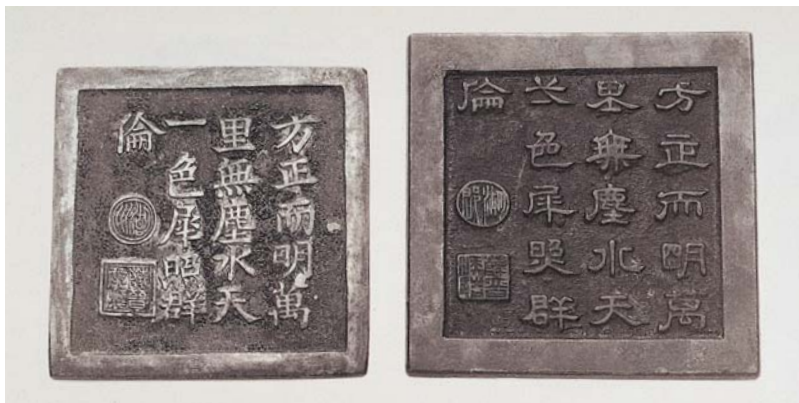 方正而明萬
里無塵水天
一色犀照群
倫
方正而明萬
里無塵水天
弌色犀照群
倫